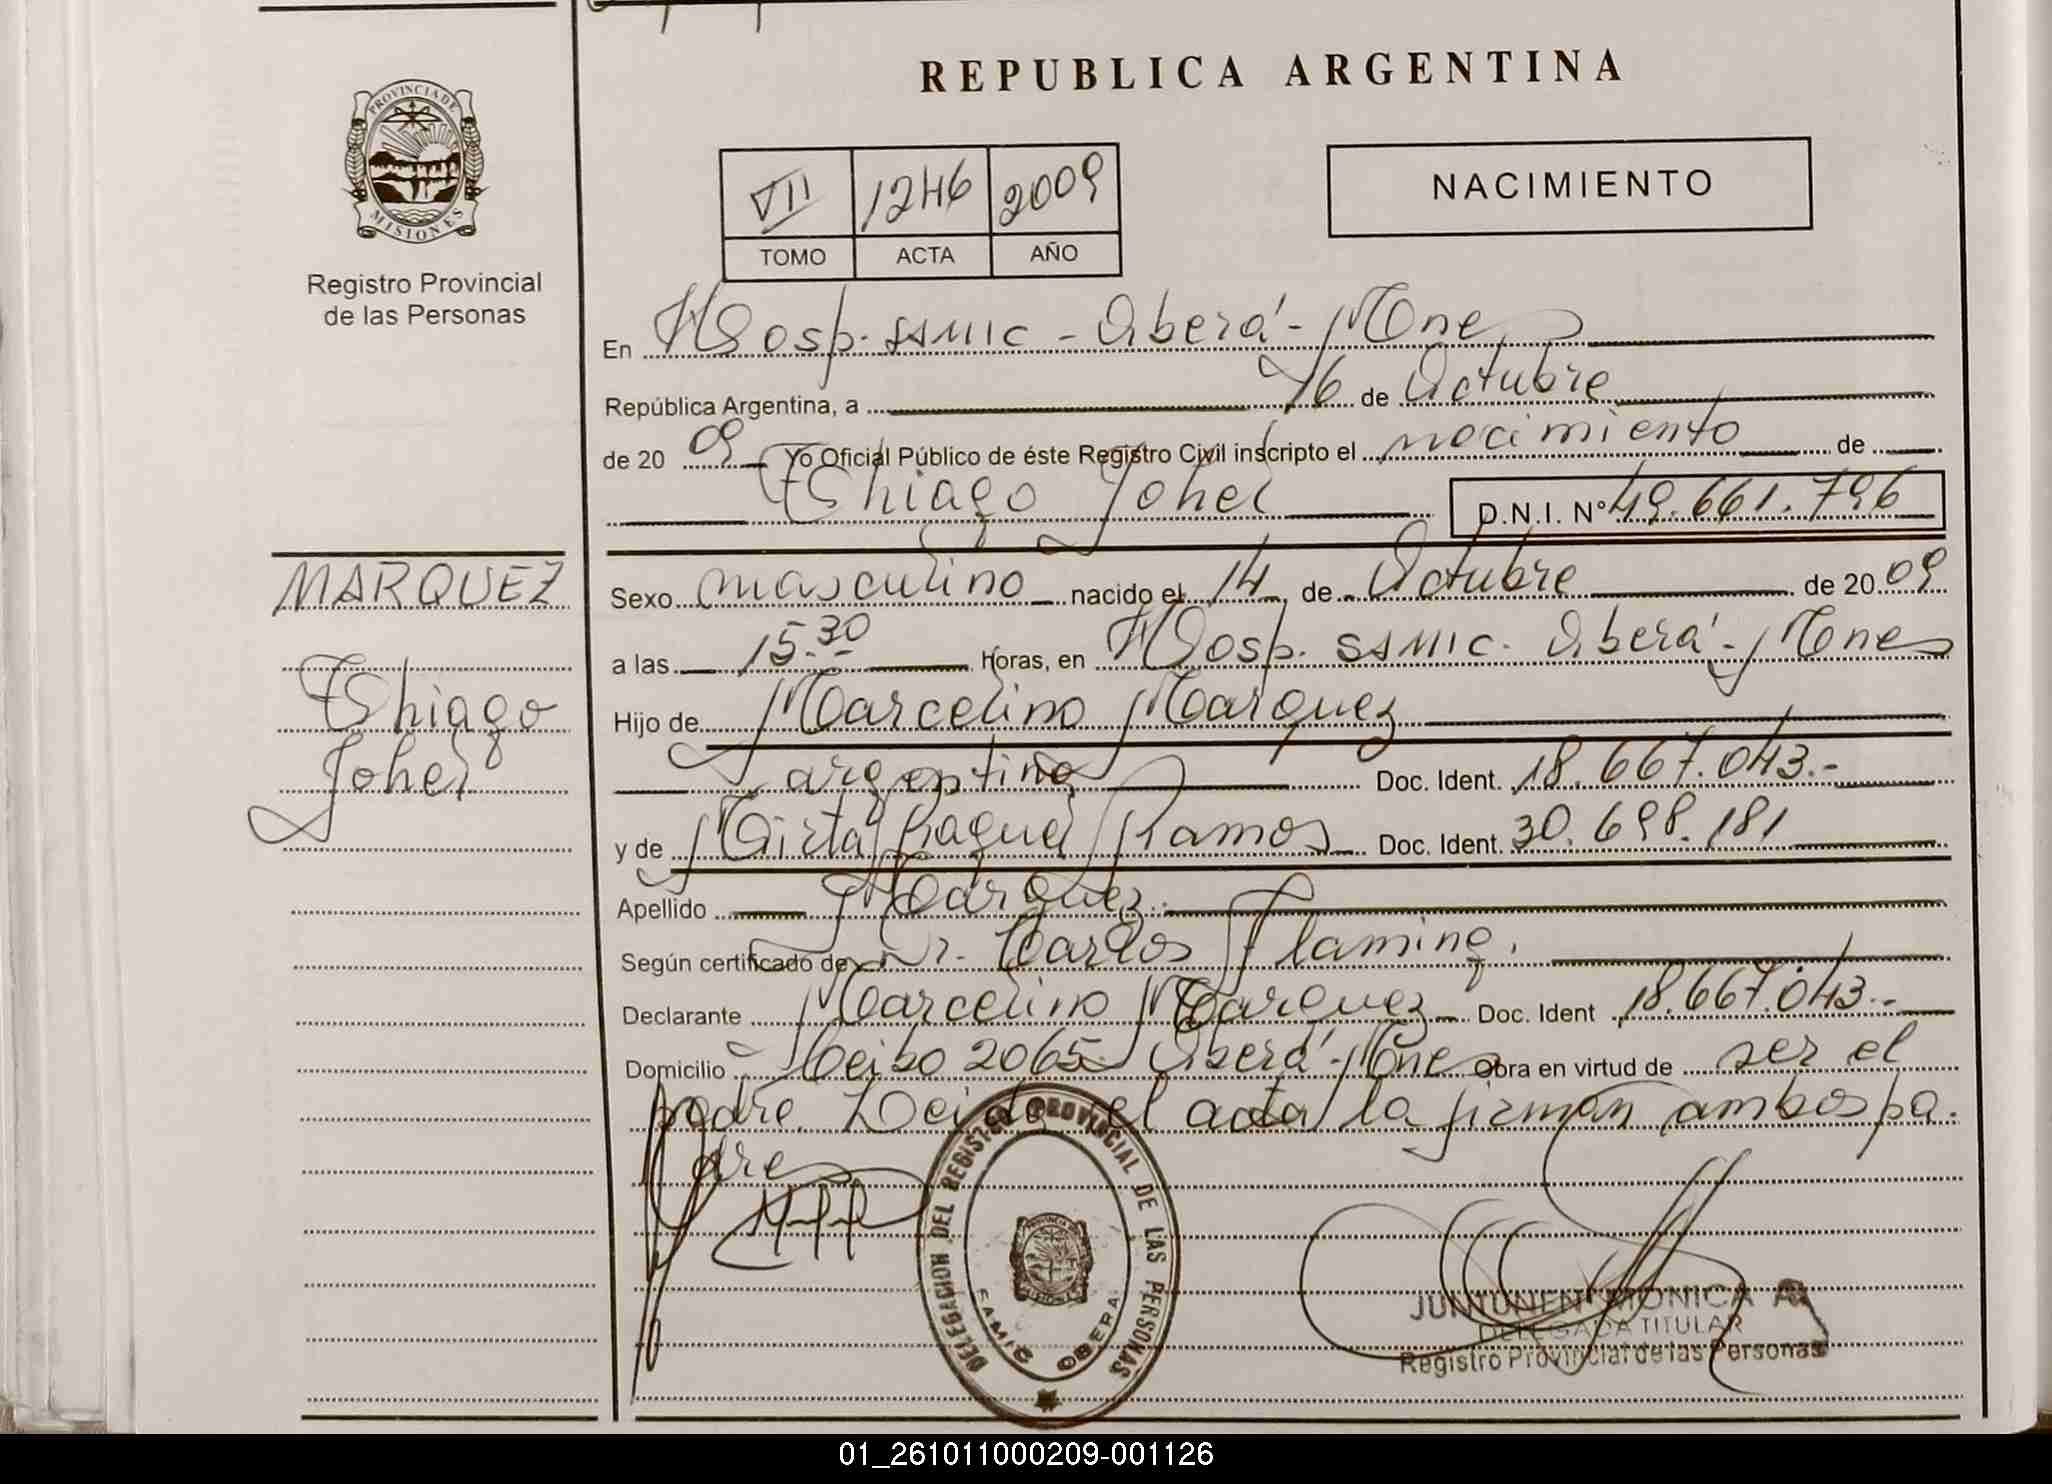 REPUBLICA ARGENTINA
PROVINCIA DE
MISIONES
Registro Provincial
de las Personas
VII 1246 2009
TOMO ACTA AÑO
NACIMIENTO
En Hosp. SAMIC - Oberá - Mnes
República Argentina, a 16 de Octubre
de 20 09 Yo Oficial Público de éste Registro Civil inscripto el nacimiento de
Thiago Johel D.N.I. Nº 49.661.796
MARQUEZ
Thiago
Johel
Sexo masculino nacido el 14 de Octubre de 20 09
a las 15.30 Horas, en Hosp. SAMIC. Oberá - Mnes
Hijo de Marcelino Marquez
argentino Doc. Ident. 18.667.043.-
y de Mirta Raquel Ramos Doc. Ident. 30.698.181
Apellido Marquez.
Según certificado de Dr. Carlos Flaming.
Declarante Marcelino Marquez Doc. Ident 18.667.043.-
Domicilio Ceibo 2065 Oberá - Mnes Obra en virtud de ser el
padre. Leida el acta la firman ambos pa.
dres
DELEGACION DEL REGISTRO PROVINCIAL DE LAS PERSONAS
SAMIC OBERA
JUNTUNEN MONICA
DELEGADA TITULAR
Registro Provincial de las Personas
01_261011000209-001126